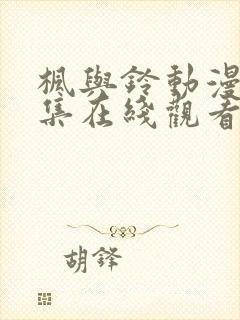 楓與鈴動漫
集在綫觀看
胡鋒